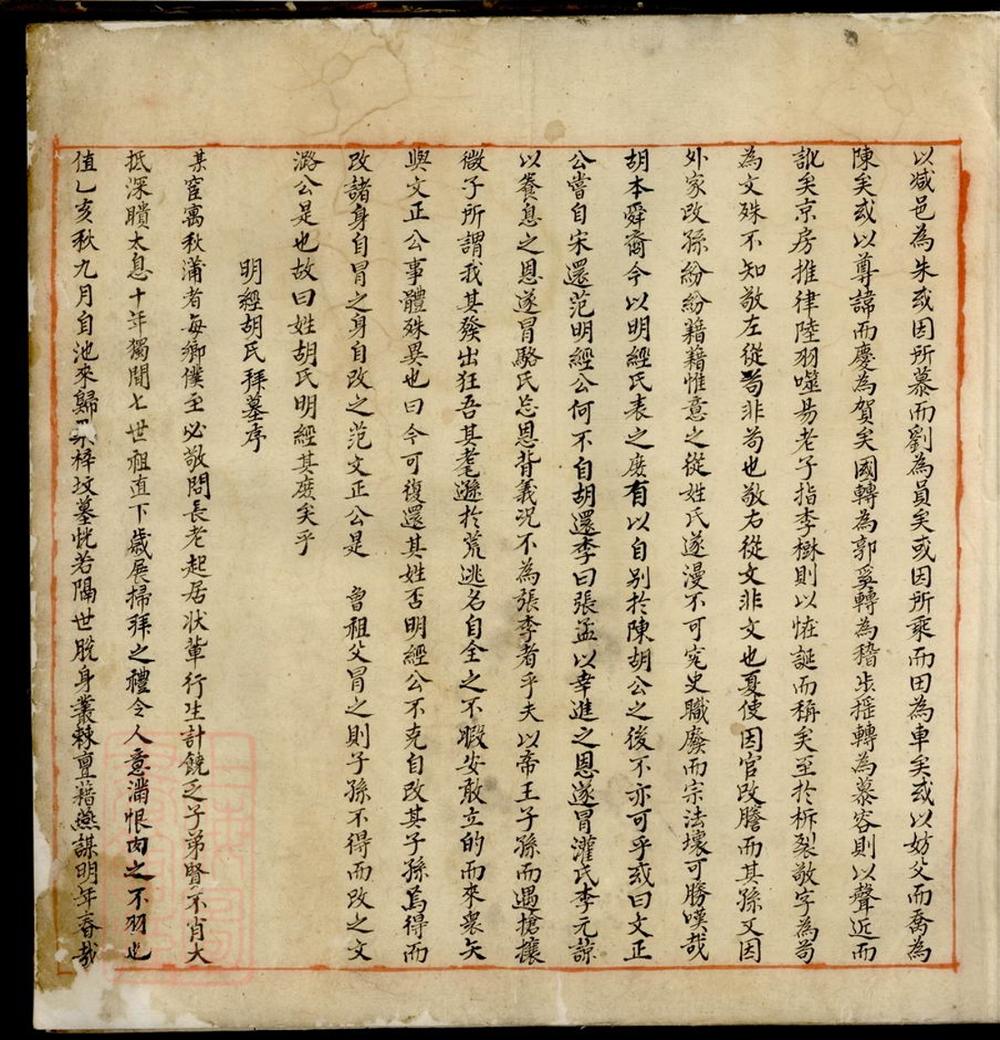 以减邑為朱或因所慕而劉為員矣或因所乘而田為車矣或以妨父而喬為
陳矣或以尊諱而慶為賀矣國轉為郭奚轉為稽步揺轉為慕容則以聲近而
訛矣京房推律陸羽噬易老子指李樹則以恠誕而稱矣至於柝裂敬字為茍
為文殊不知敬左從茍非苟也敬右從文非文也憂使因官改謄而其孫又因
外家改孫紛紛藉藉惟意之從姓氏遂漫不可究史職廢而宗法壞可勝嘆哉
胡本舜裔今以明經氏表之庶有以自别於陳胡公之後不亦可乎或曰文正
公嘗自宋還范明經公何不自胡還李曰張孟以幸進之恩遂冒灌氏李元諒
以養息之恩遂冒駱氏忘恩背義况不為張李者乎夫以帝王子孫而遇搶攘
微子所謂我其發出狂吾其耄遜於荒逃名自全之不暇安敢立的而來衆矢
與文正公事體殊異也曰今可復還其姓否明經公不克自改其子孫焉得而
改諸身自冒之身自改之范文正公是 魯祖父冒之則子孫不得而改之文
潞公是也故曰姓胡氏明經其庶矣乎
明經胡氏拜墓序
某宦寓秋蒲者每鄉僕至必敬問長老起居狀輩行生計饒乏子弟賢不肖大
抵深瞶太息十年獨聞七世祖直下歲展掃拜之禮令人意滿恨肉之不羽也
值乙亥秋九月自池來歸梓墳墓恍若隔世脱身叢棘亶藉燕謀明年春哉